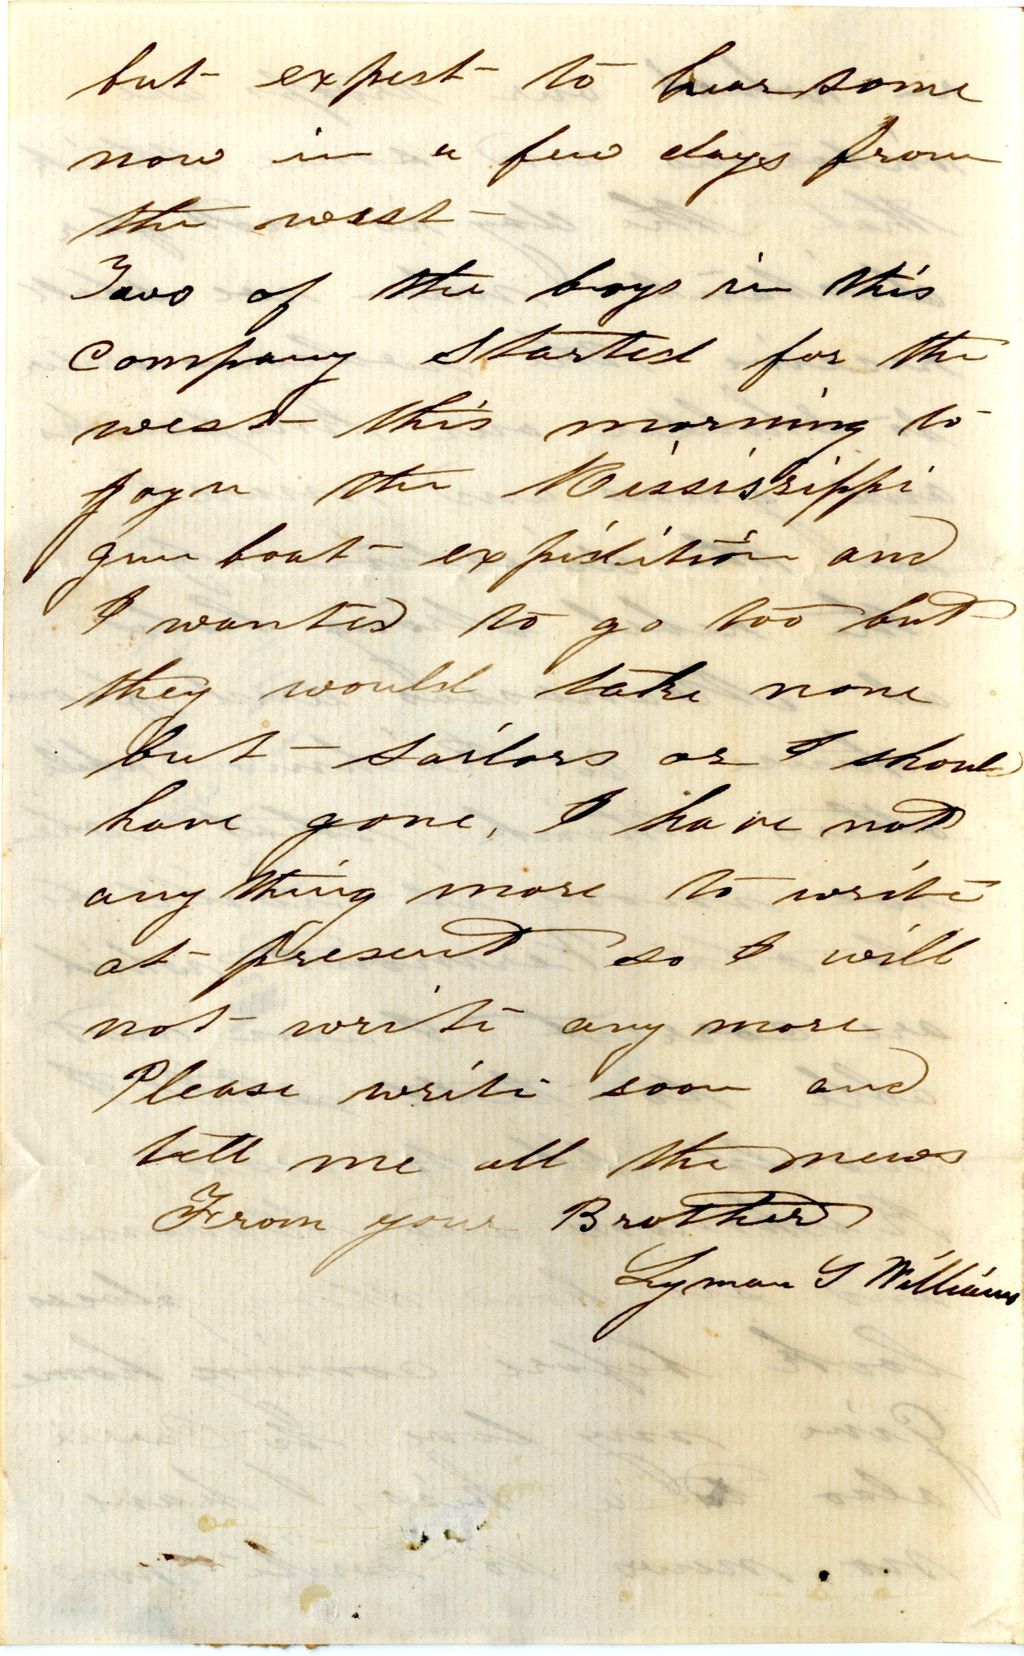 but expest to hear some
now in a few days from
the west
Two of the boys in this
Company Started for the
west this morning to
joyn the Mississippi
gun boat expidition and
I wanted to go too but
they would take none
but sailors or I should
have gone, I have not
any thing more to write
at present so I will
not write any more
Please write soon and
tell me all the news
From your Brother
Lyman S Williams